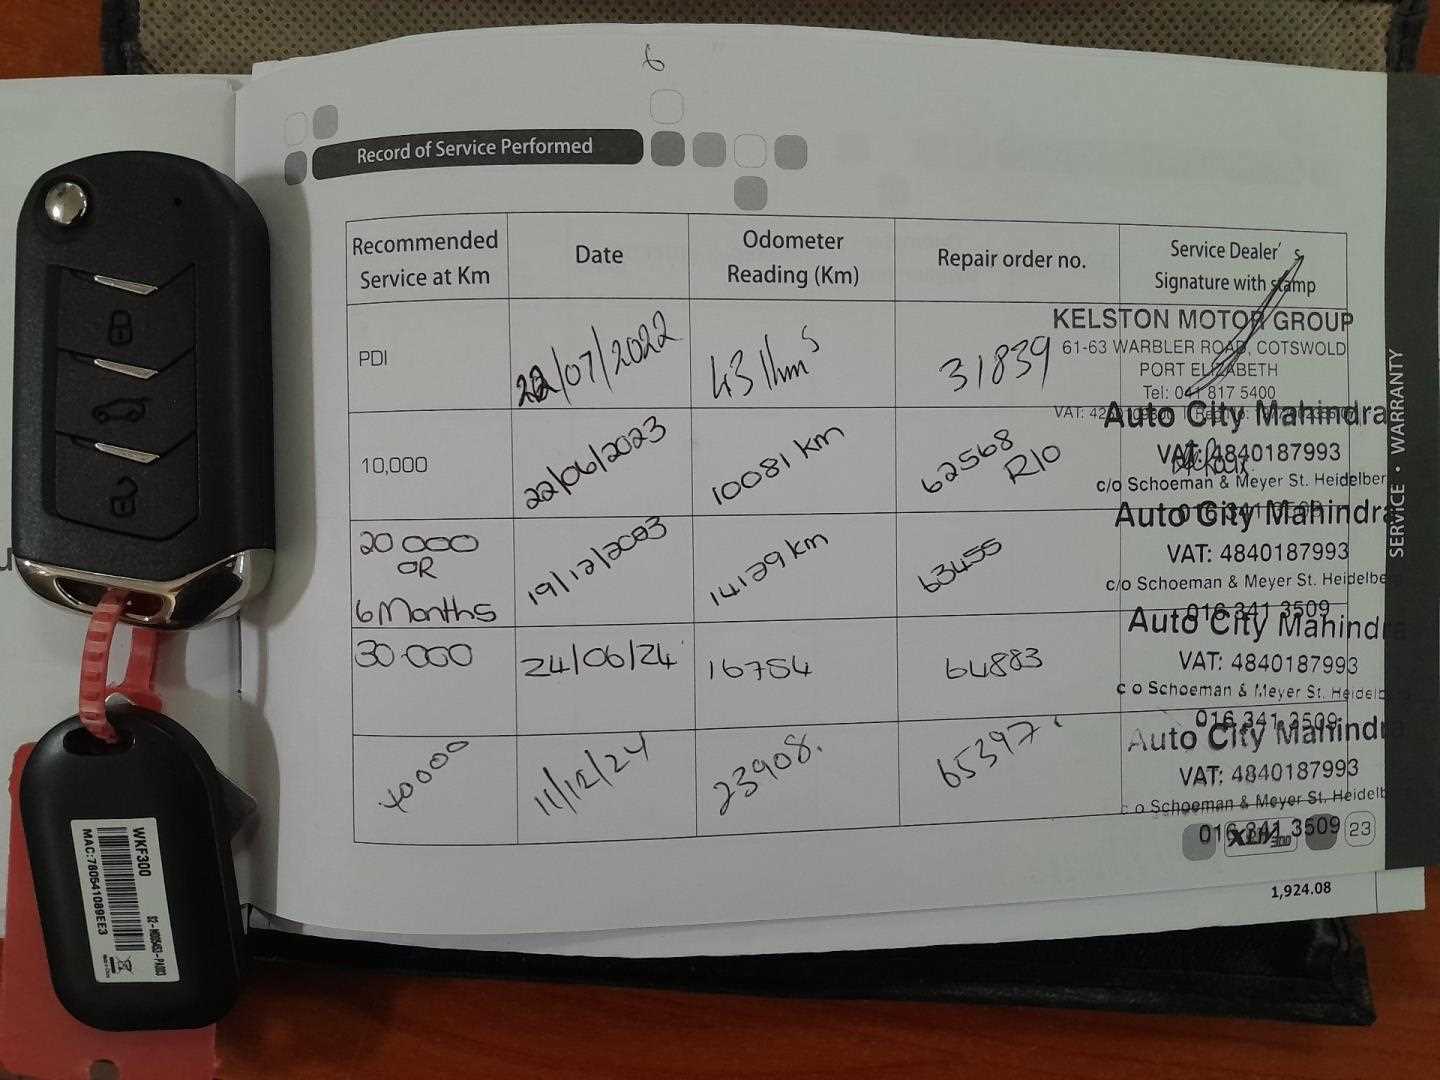 6
Record of Service Performed
Recommended
Service at Km
Date
Odometer
Reading (Km)
Repair order no.
Service Dealer's
Signature with stamp
PDI
22/07/2022
31839
KELSTON MOTOR GROUP
61-63 WARBLER ROAD, COTSWOLD
PORT ELIZABETH
Tel: 041 817 5400
10,000
22/06/2023
10081 km
62568
R10
Auto City Mahindra
VAT: 4840187993
c/o Schoeman & Meyer St. Heidelber
20 000
OR
6 Months
19/12/2023
14129 km
63455
Auto City Mahindra
VAT: 4840187993
c/o Schoeman & Meyer St. Heidelbe
016 341 3509
30 000
24/06/24
16754
64883
Auto City Mahindra
VAT: 4840187993
c o Schoeman & Meyer St. Heidelb
016 341 3509
40000
11/12/24
23908.
65397
Auto City Mahindra
VAT: 4840187993
c o Schoeman & Meyer St. Heidelb
016 341 3509
XUV300
23
1,924.08
SERVICE • WARRANTY
WKF300
MAC:780541089EE3